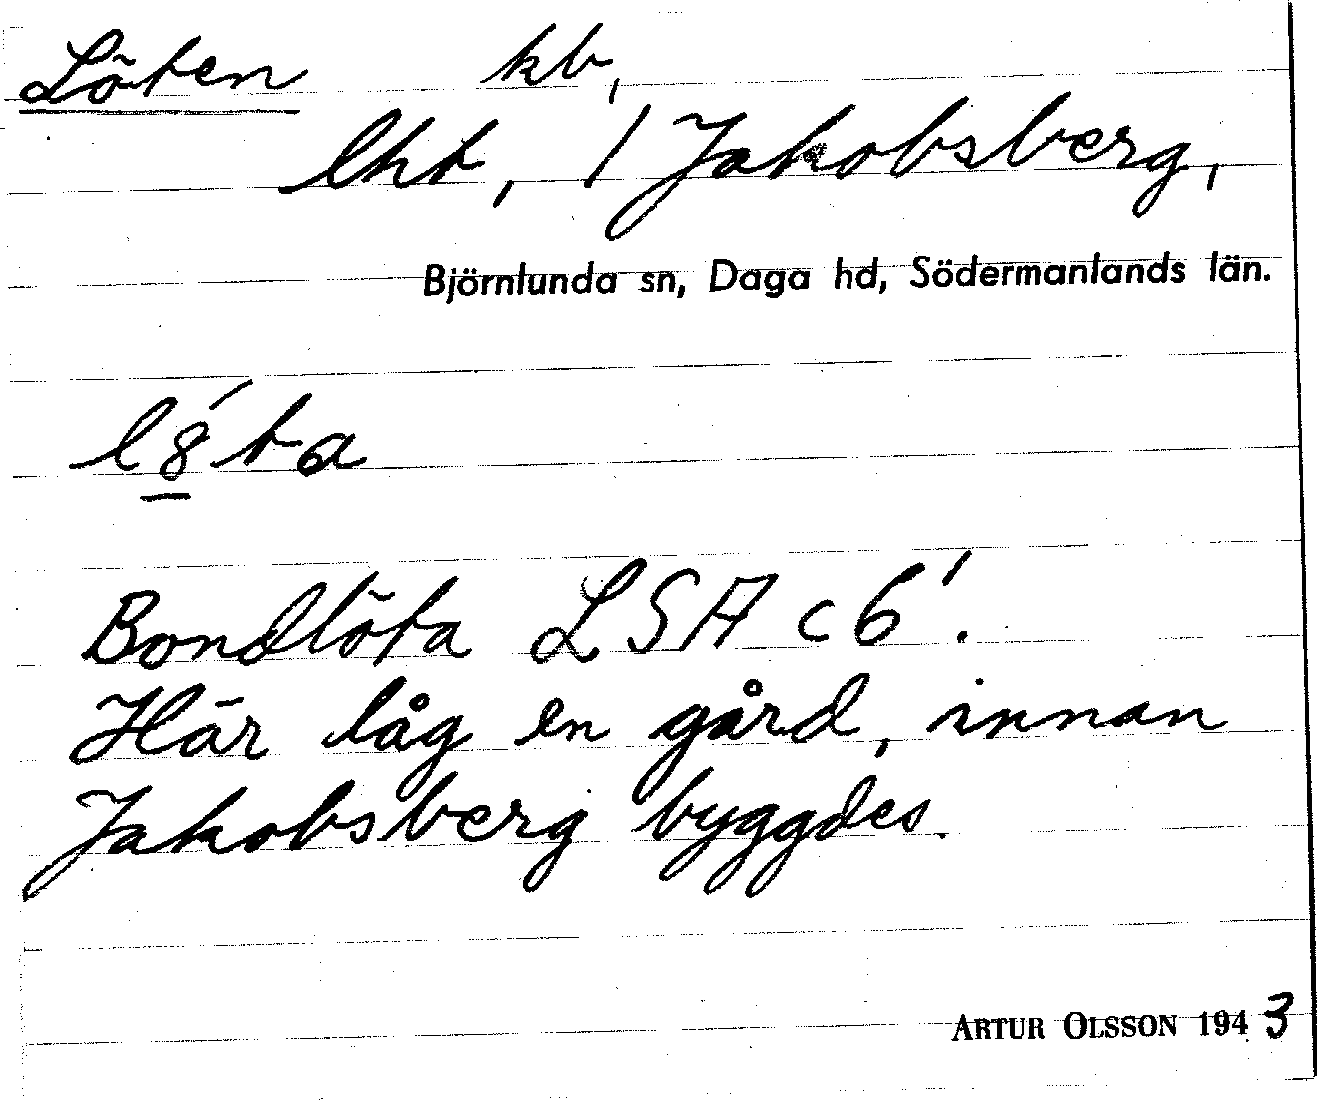 Löten kb,
lht, 1 Jakobsberg,
Björnlunda sn, Daga hd, Södermanlands län.
l8́ta
Bondlöta LSA c6'.
Här låg en gård, innan
Jakobsberg byggdes.
ARTUR OLSSON 1943